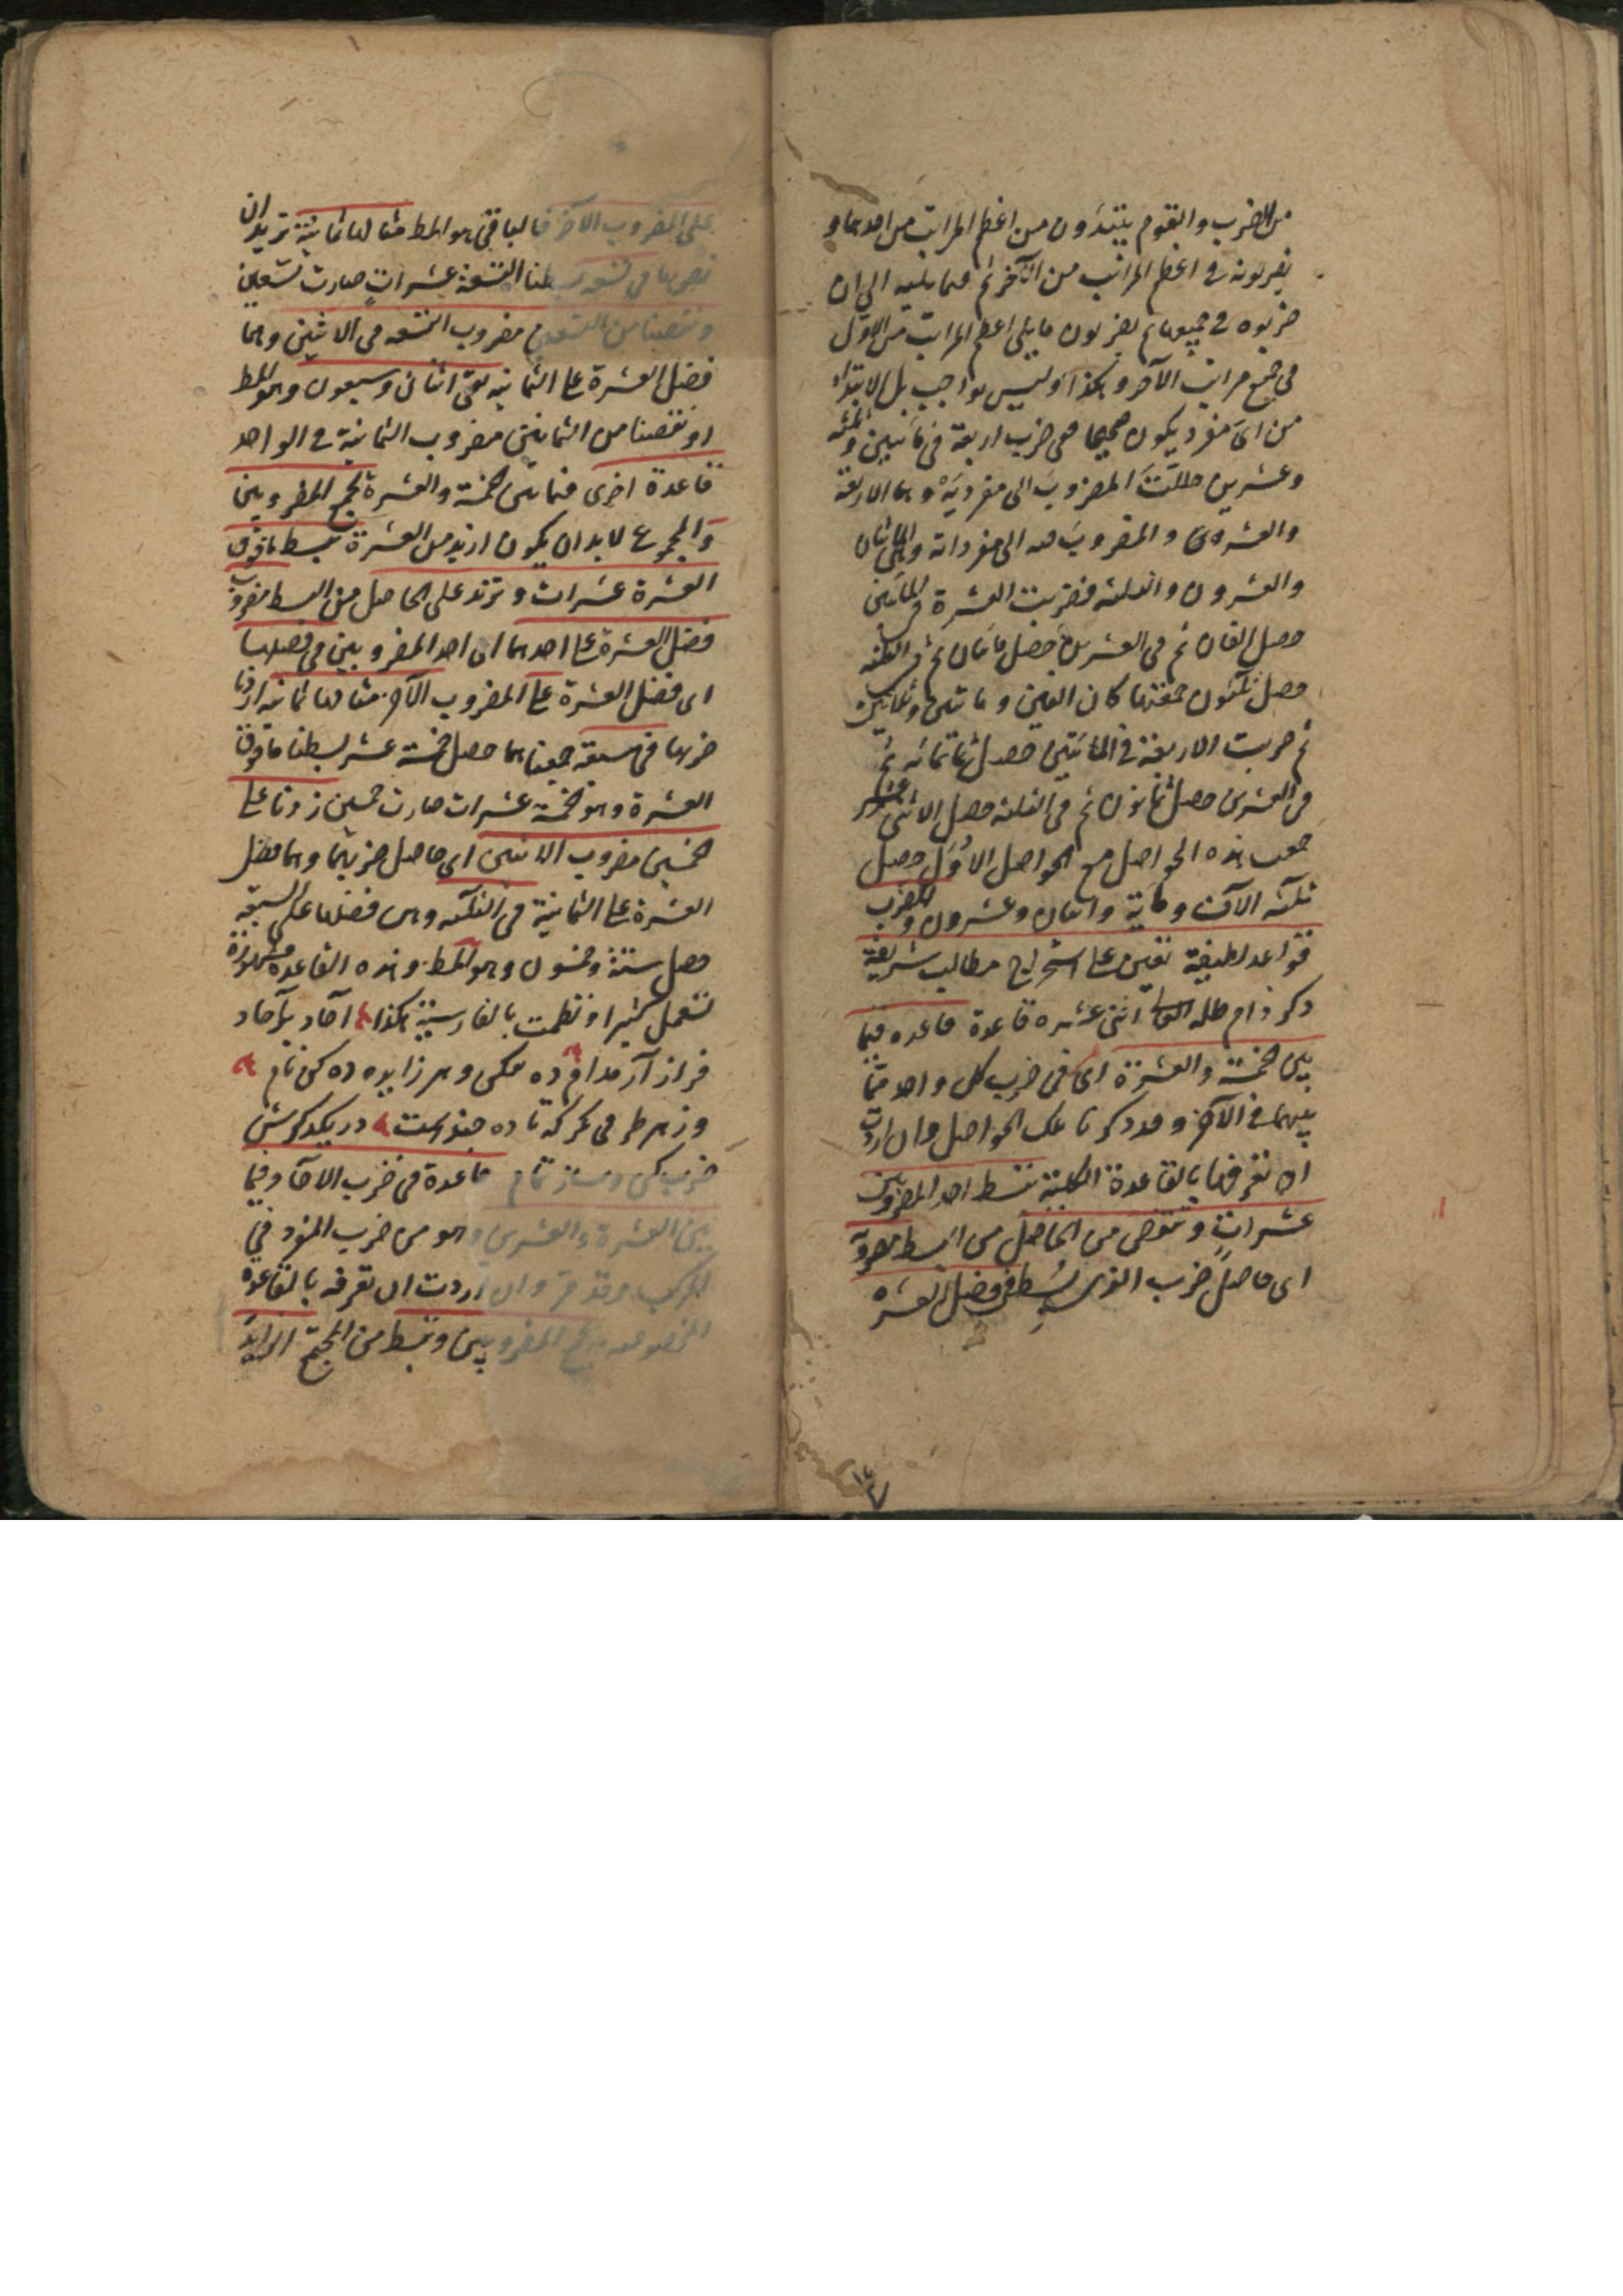 من الضرب والقوم يبتدؤن من اعظم المراتب من احدهما و
يضربونه في اعظم المراتب من الآخر ثم فيما يليه الى ان
ضربوه في جميعها ثم يضربون ما يلى اعظم المراتب من الاول
في جميع مراتب الآخر وهكذا وليس بواجب بل الابتداء
من اى مفرد يكون صحيحا ففى ضرب اربعة في مأتين وثلثه
وعشرين حللت المضروب الى مفرديه وهما الاربعة
والعشرة والمضروب فيه الى مفرداته وهى المائتان
والعشرون والثلثه فضربت العشرة في المأتين
حصل الفان ثم في العشرين حصل مأتان ثم في الثلثه
حصل ثلثون جمعتها كان الفين ومائتين وثلاثين
ثم ضربت الاربعة في المأتين حصل ثمانمائه ثم
في العشرين حصل ثمانون ثم في الثلثه حصل الاثنى عشر
جمعت هذه الحواصل مع الحواصل الاُوَل حصل
ثلثه الآف ومائة واثنان وعشرون وللضرب
قواعد لطيفة تعين على استخراج مطالب شريفة
ذكر دام ظله اثنى عشره قاعدة قاعده فيما
بين الخمسة والعشرة اى في ضرب كل واحد مما
بينهما في الآخر وقد ذكرنا تلك الحواصل وان اردت
ان تعرفها بالقاعدة الكلية تبسط احد المضروبين
عشرات وتنقص من الحاصل من البسط مضروبه
اى حاصل ضرب الذى بسط في فضل العشرة
على المضروب الآخر فالباقي هو المط مثالها ثمانية تريد ان
تضربها في تسعه بسطنا التسعة عشرات صارت تسعين
ونقصنا من التسعين مضروب التسعه في الاثنين وهما
فضل العشرة على الثمانيه بقى اثنان وسبعون وهو المط
او نقصنا من الثمانين مضروب الثمانية في الواحد
قاعدة اخرى فيما بين الخمسة والعشرة تجمع المضروبين
والمجموع لابد ان يكون ازيد من العشرة تبسط ما فوق
العشرة عشرات وتزيد على الحاصل من البسط مضروب
فضل العشرة على احدهما اى احد المضروبين في فضلها
اى فضل العشرة على المضروب الآخر مثالها ثمانيه اردنا
ضربها في سبعة جمعناهما حصل خمسة عشر بسطنا ما فوق
العشرة وهو خمسة عشرات صارت خمسين زدنا على
الخمسين مضروب الاثنين اى حاصل ضربهما وهما فضل
العشرة على الثمانية في الثلثه وهى فضلها على السبعة
حصل ستة وخمسون وهو المط وهذه القاعدة مشهورة
تستعمل كثيرا ونظمت بالفارسية هكذا آحاد بآحاد
فراز آر مدام ده فكن وهر زايده ده كن نام
وز هر طرفى نكر كه تا ده چندست در يكدكرش
ضرب كن و ساز تمام قاعدة في ضرب الآحاد فيما
بين العشرة والعشرين وهو من ضرب المفرد في
المركب وقد مر وان اردت ان تعرفه بالقاعدة
المخصوصه تجمع المضروبين وتبسط من المجتمع الزايد